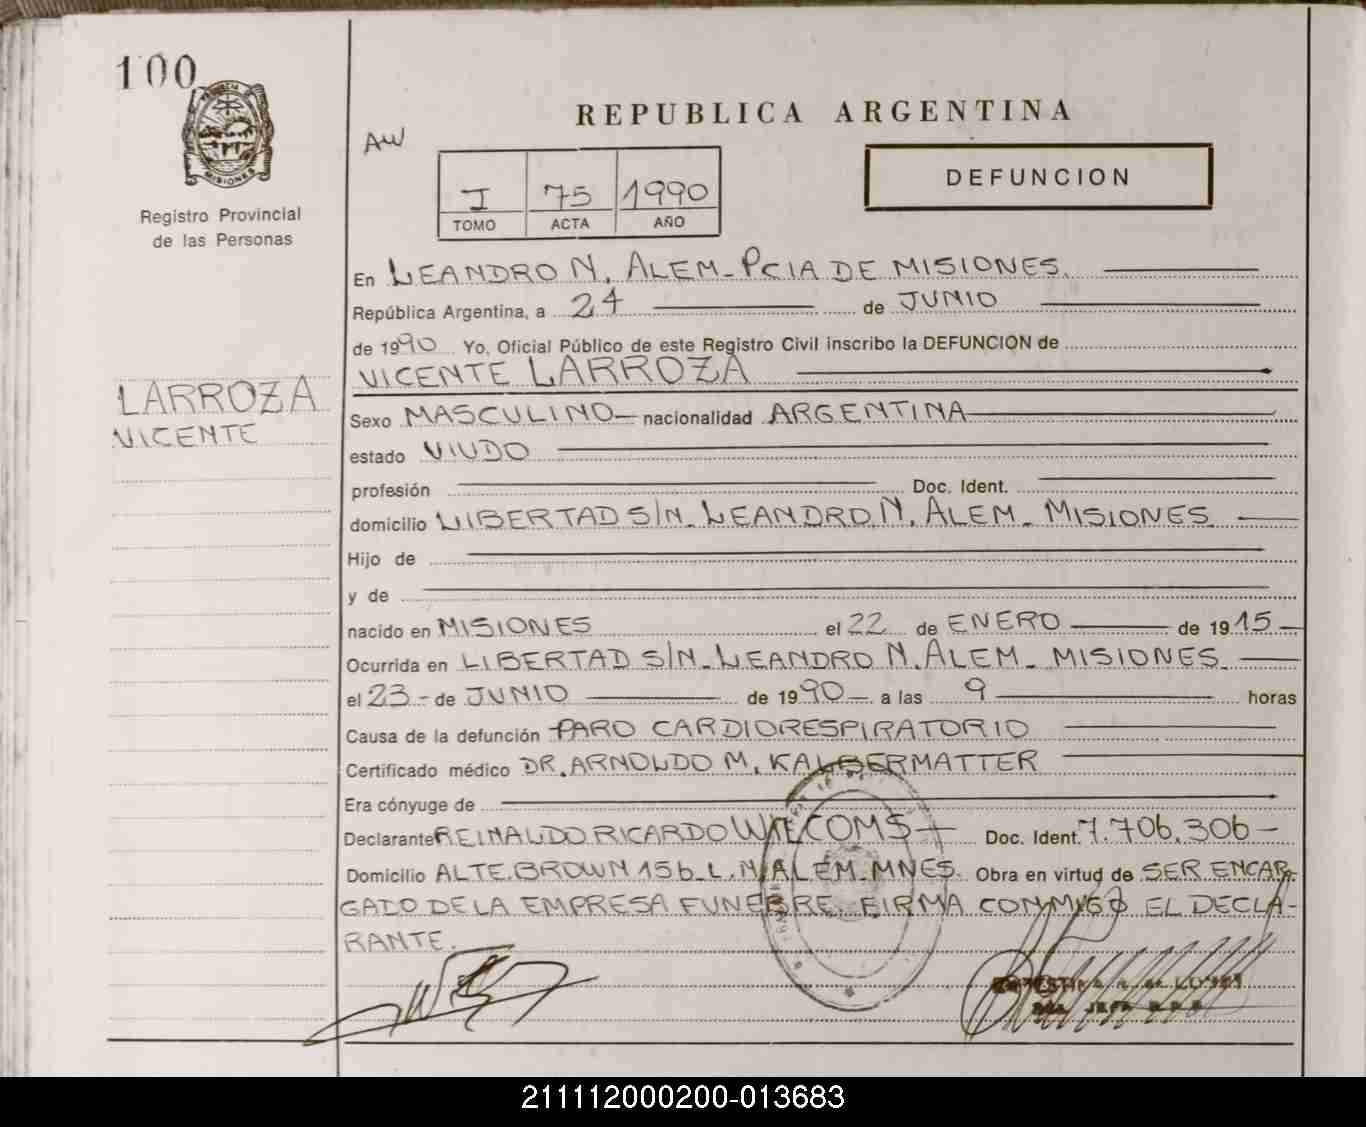 100
MISIONES
Registro Provincial
de las Personas
LARROZA
VICENTE
REPUBLICA ARGENTINA
AW
I 75 1990
TOMO ACTA AÑO
DEFUNCION
En LEANDRO N. ALEM - PCIA DE MISIONES.
República Argentina, a 24 de JUNIO
de 1990 Yo, Oficial Público de este Registro Civil inscribo la DEFUNCION de
VICENTE LARROZA
Sexo MASCULINO nacionalidad ARGENTINA
estado VIUDO
profesión Doc. Ident.
domicilio LIBERTAD S/N. LEANDRO N. ALEM - MISIONES
Hijo de
y de
nacido en MISIONES el 22 de ENERO de 1915
Ocurrida en LIBERTAD S/N - LEANDRO N. ALEM - MISIONES
el 23 - de JUNIO de 1990 a las 9 horas
Causa de la defunción PARO CARDIORESPIRATORIO
Certificado médico DR. ARNOLDO M. KALBERMATTER
Era cónyuge de
Declarante REINALDO RICARDO Doc. Ident. 7.706.306 -
Domicilio ALTE. BROWN 156 - L. N. ALEM - MNES. Obra en virtud de SER ENCAR-
GADO DE LA EMPRESA FUNEBRE. FIRMA CONMIGO EL DECLA-
RANTE.
211112000200-013683